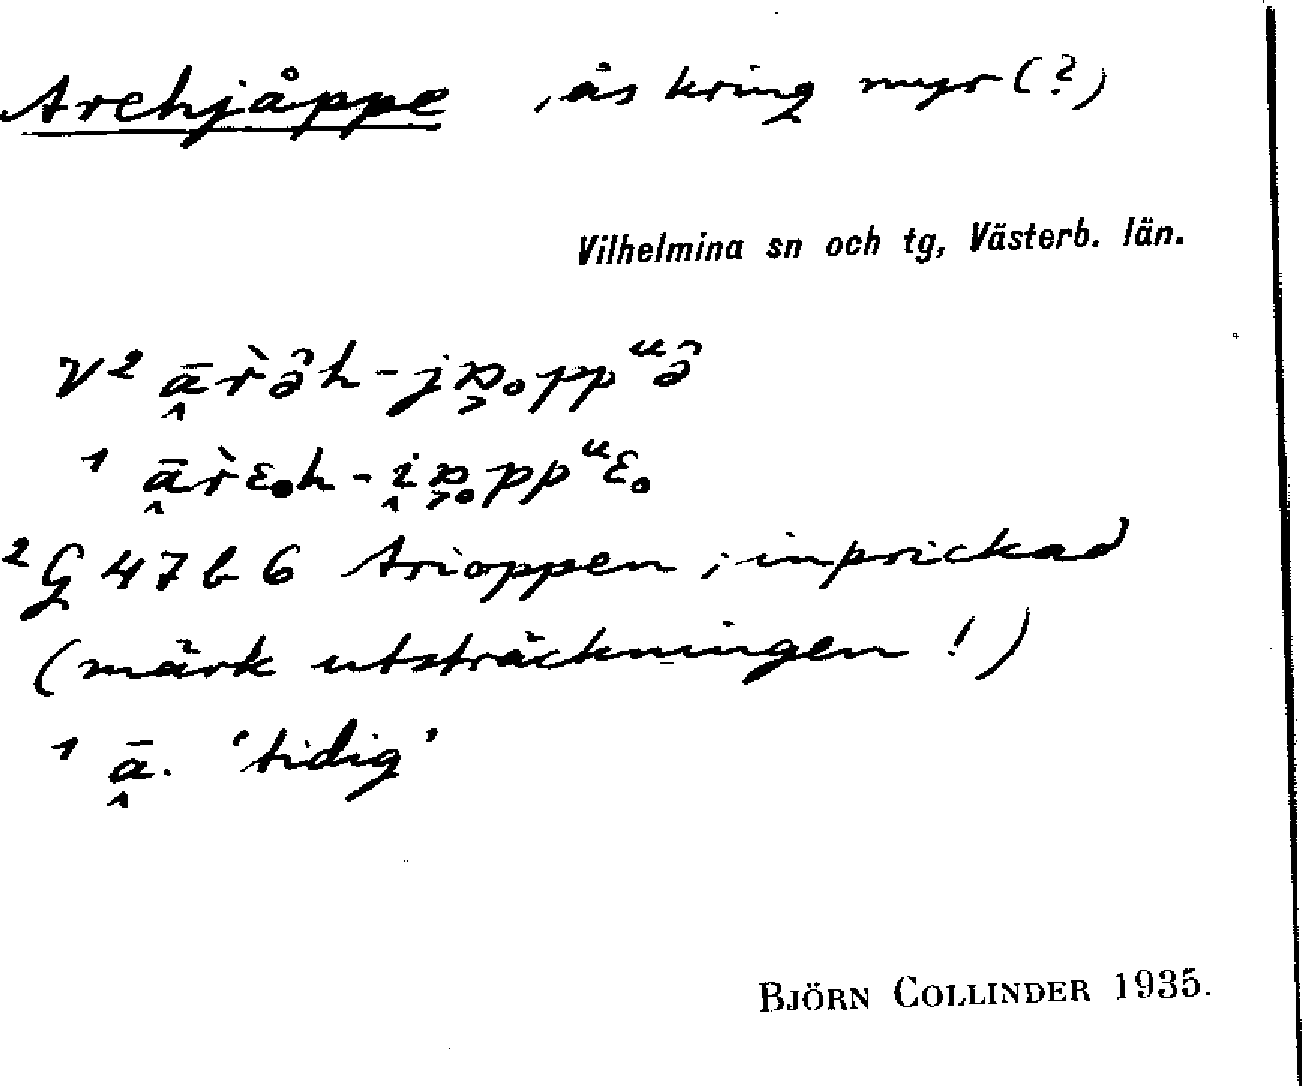 Arehjåppe , ås kring myr (?)
Vilhelmina sn och tg, Västerb. län.
V² a̭̅r̀ə̑h-jɒ̭₀ppᵘə̑
¹ a̭̅r̀ɛ₀h-i̭ɒ̭₀ppᵘɛ₀
² G 47 b 6 Arioppen ; inprickad
(märk utsträckningen !)
¹ a̭̅. 'tidig'
BJÖRN COLLINDER 1935.